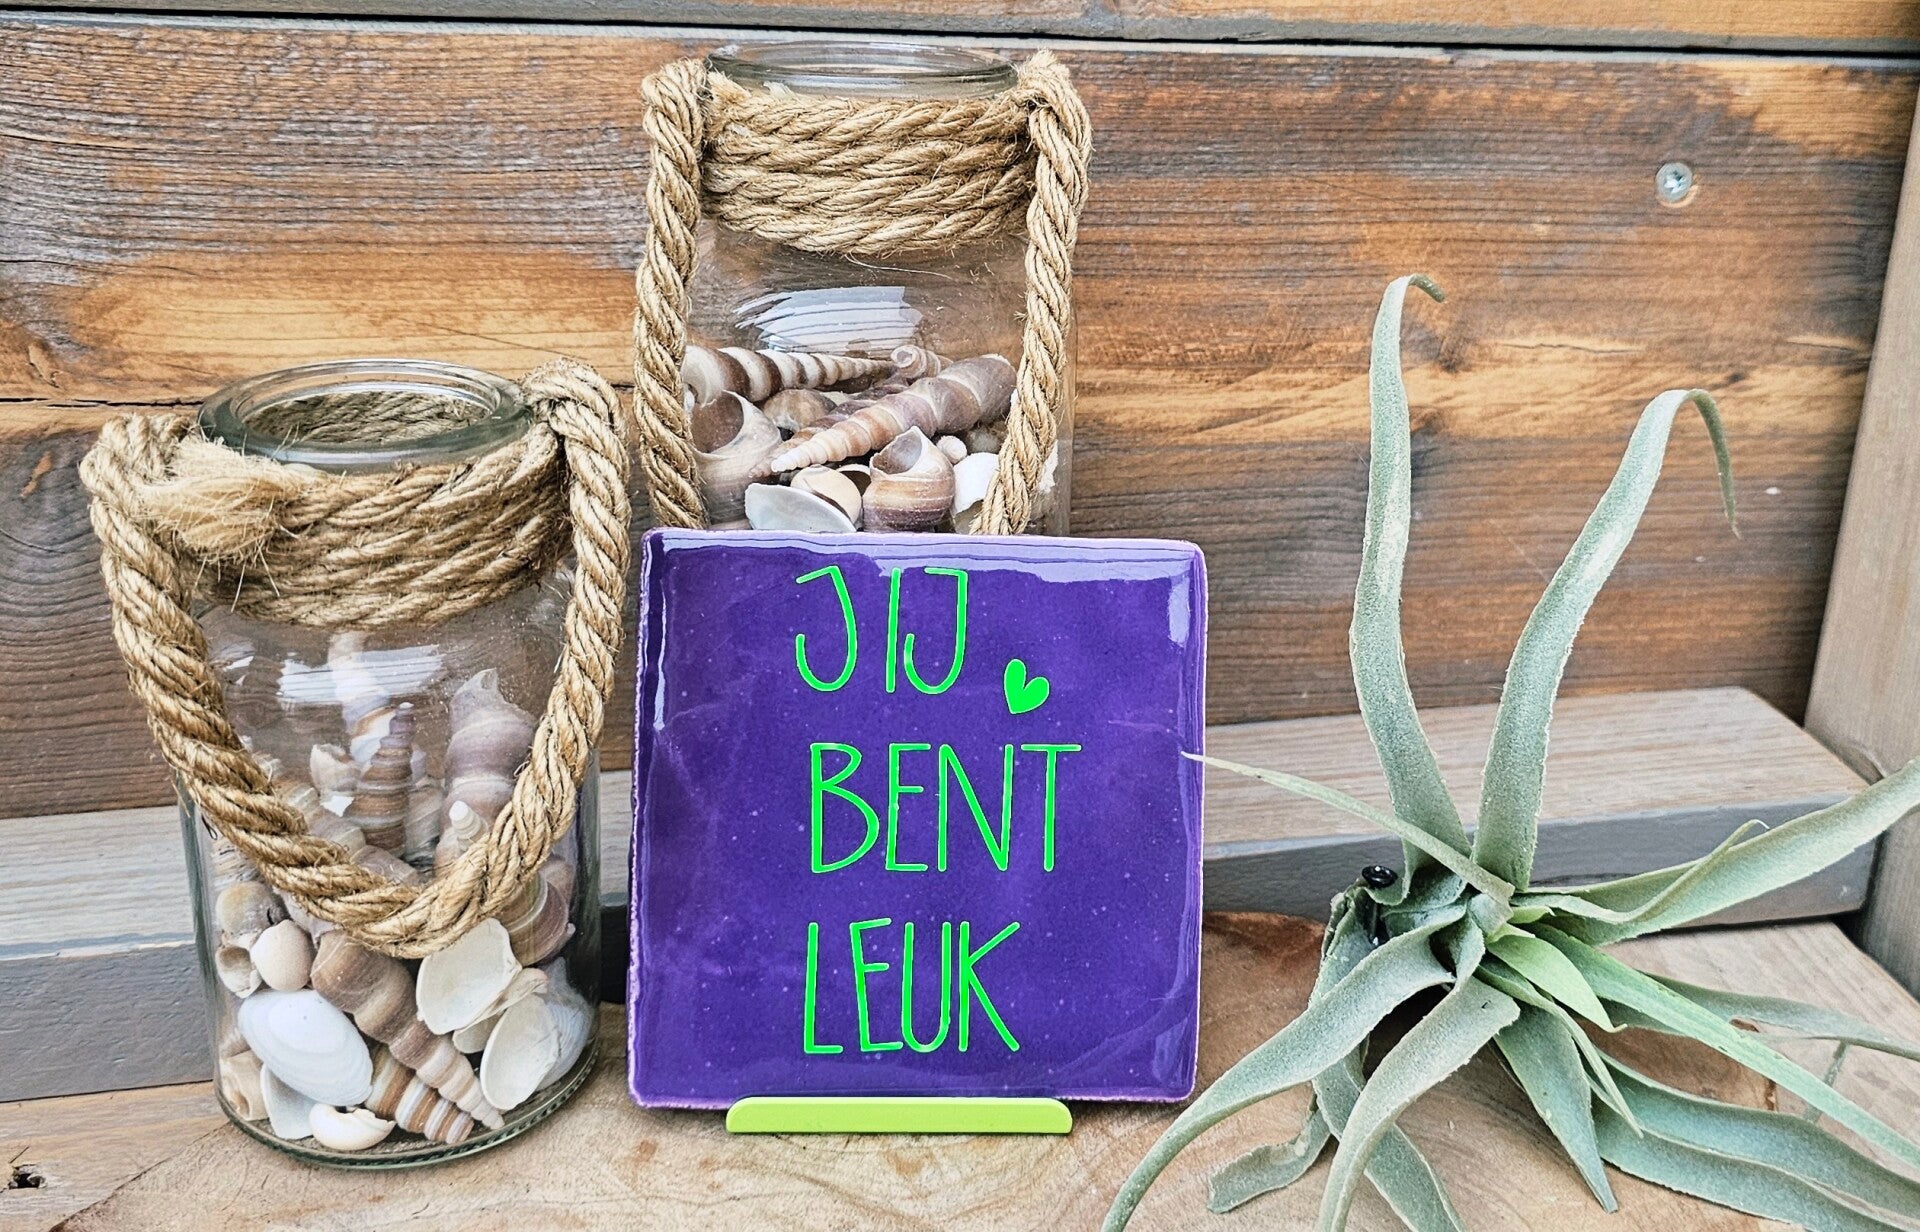 JIJ
BENT
LEUK